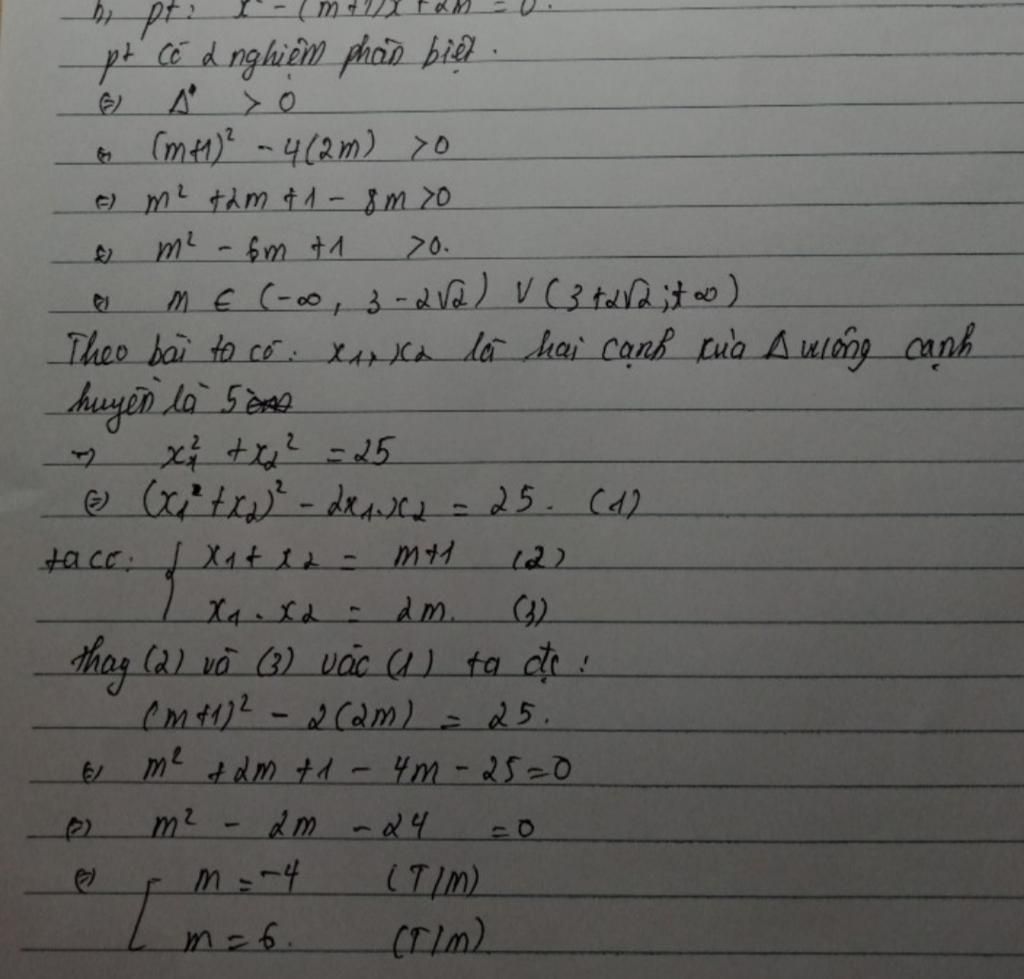 b, pt: x² - (m+1)x + 2m = 0.
pt có 2 nghiệm phân biệt.
⇔ Δ > 0
⇔ (m+1)² - 4(2m) > 0
⇔ m² + 2m + 1 - 8m > 0
⇔ m² - 6m + 1 > 0.
⇔ m ∈ (-∞, 3 - 2√2) ∨ (3 + 2√2; +∞)
Theo bài ta có: x₁, x₂ là hai cạnh của Δ vuông cạnh
huyền là 5
→ x₁² + x₂² = 25
⇔ (x₁ + x₂)² - 2x₁.x₂ = 25. (1)
ta có: { x₁ + x₂ = m+1 (2)
x₁ . x₂ = 2m. (3)
thay (2) và (3) vào (1) ta đc:
(m+1)² - 2(2m) = 25.
⇔ m² + 2m + 1 - 4m - 25 = 0
⇔ m² - 2m - 24 = 0
⇔ [ m = -4 (T/m)
m = 6. (T/m)